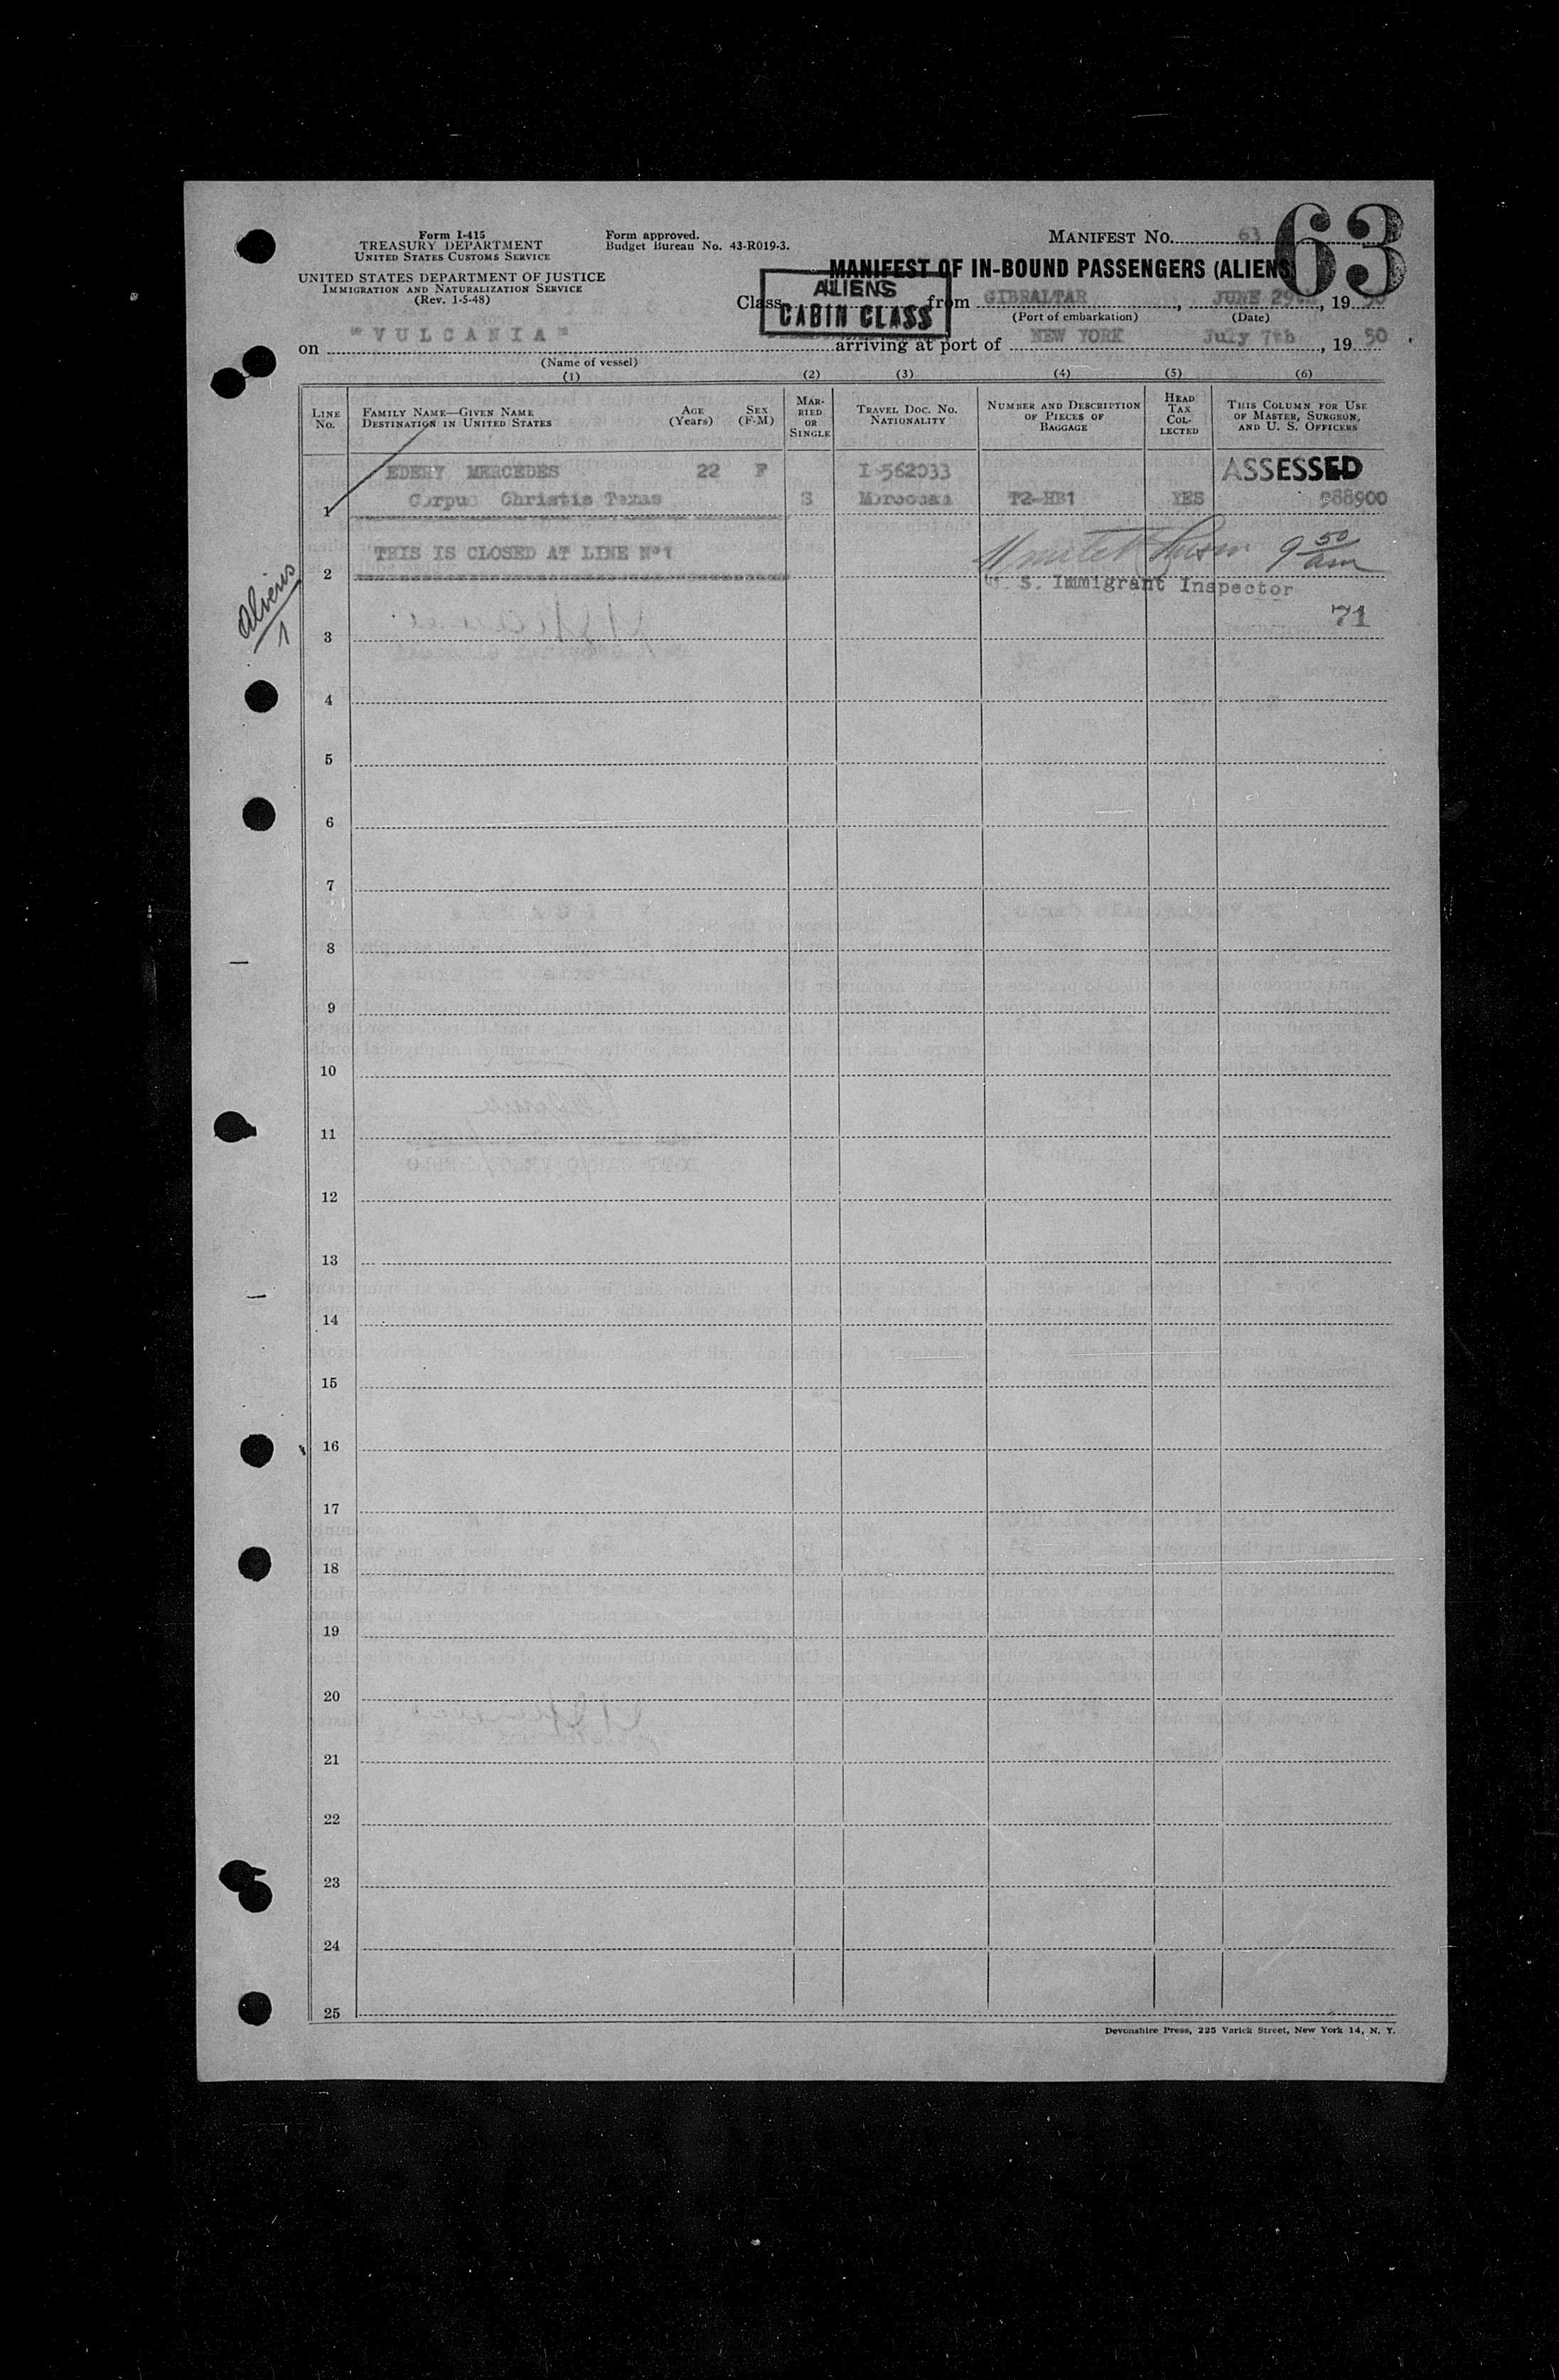 63
Form I-415
TREASURY DEPARTMENT
UNITED STATES CUSTOMS SERVICE
UNITED STATES DEPARTMENT OF JUSTICE
IMMIGRATION AND NATURALIZATION SERVICE
(Rev. 1-5-48)
Form approved.
Budget Bureau No. 43-R019-3.
MANIFEST No. 63
MANIFEST OF IN-BOUND PASSENGERS (ALIENS)
Class ALIENS CABIN CLASS from GIBRALTAR, JUNE 29th, 19 50
(Port of embarkation) (Date)
on "VULCANIA" arriving at port of NEW YORK July 7th, 19 50
(Name of vessel)
(1) (2) (3) (4) (5) (6)
LINE No.
FAMILY NAME—GIVEN NAME
DESTINATION IN UNITED STATES
AGE (Years)
SEX (F-M)
MARRIED OR SINGLE
TRAVEL DOC. No.
NATIONALITY
NUMBER AND DESCRIPTION OF PIECES OF BAGGAGE
HEAD TAX COLLECTED
THIS COLUMN FOR USE OF MASTER, SURGEON, AND U. S. OFFICERS
EDERY MERCEDES 22 F I-562033 ASSESSED
1 Corpus Christis Texas S Moroccan T2-HB1 YES 988900
THIS IS CLOSED AT LINE Nº1 9 50 am
2
U. S. Immigrant Inspector
Aliens
1
71
3
4
5
6
7
8
9
10
11
12
13
14
15
16
17
18
19
20
21
22
23
24
25
Devonshire Press, 225 Varick Street, New York 14, N. Y.